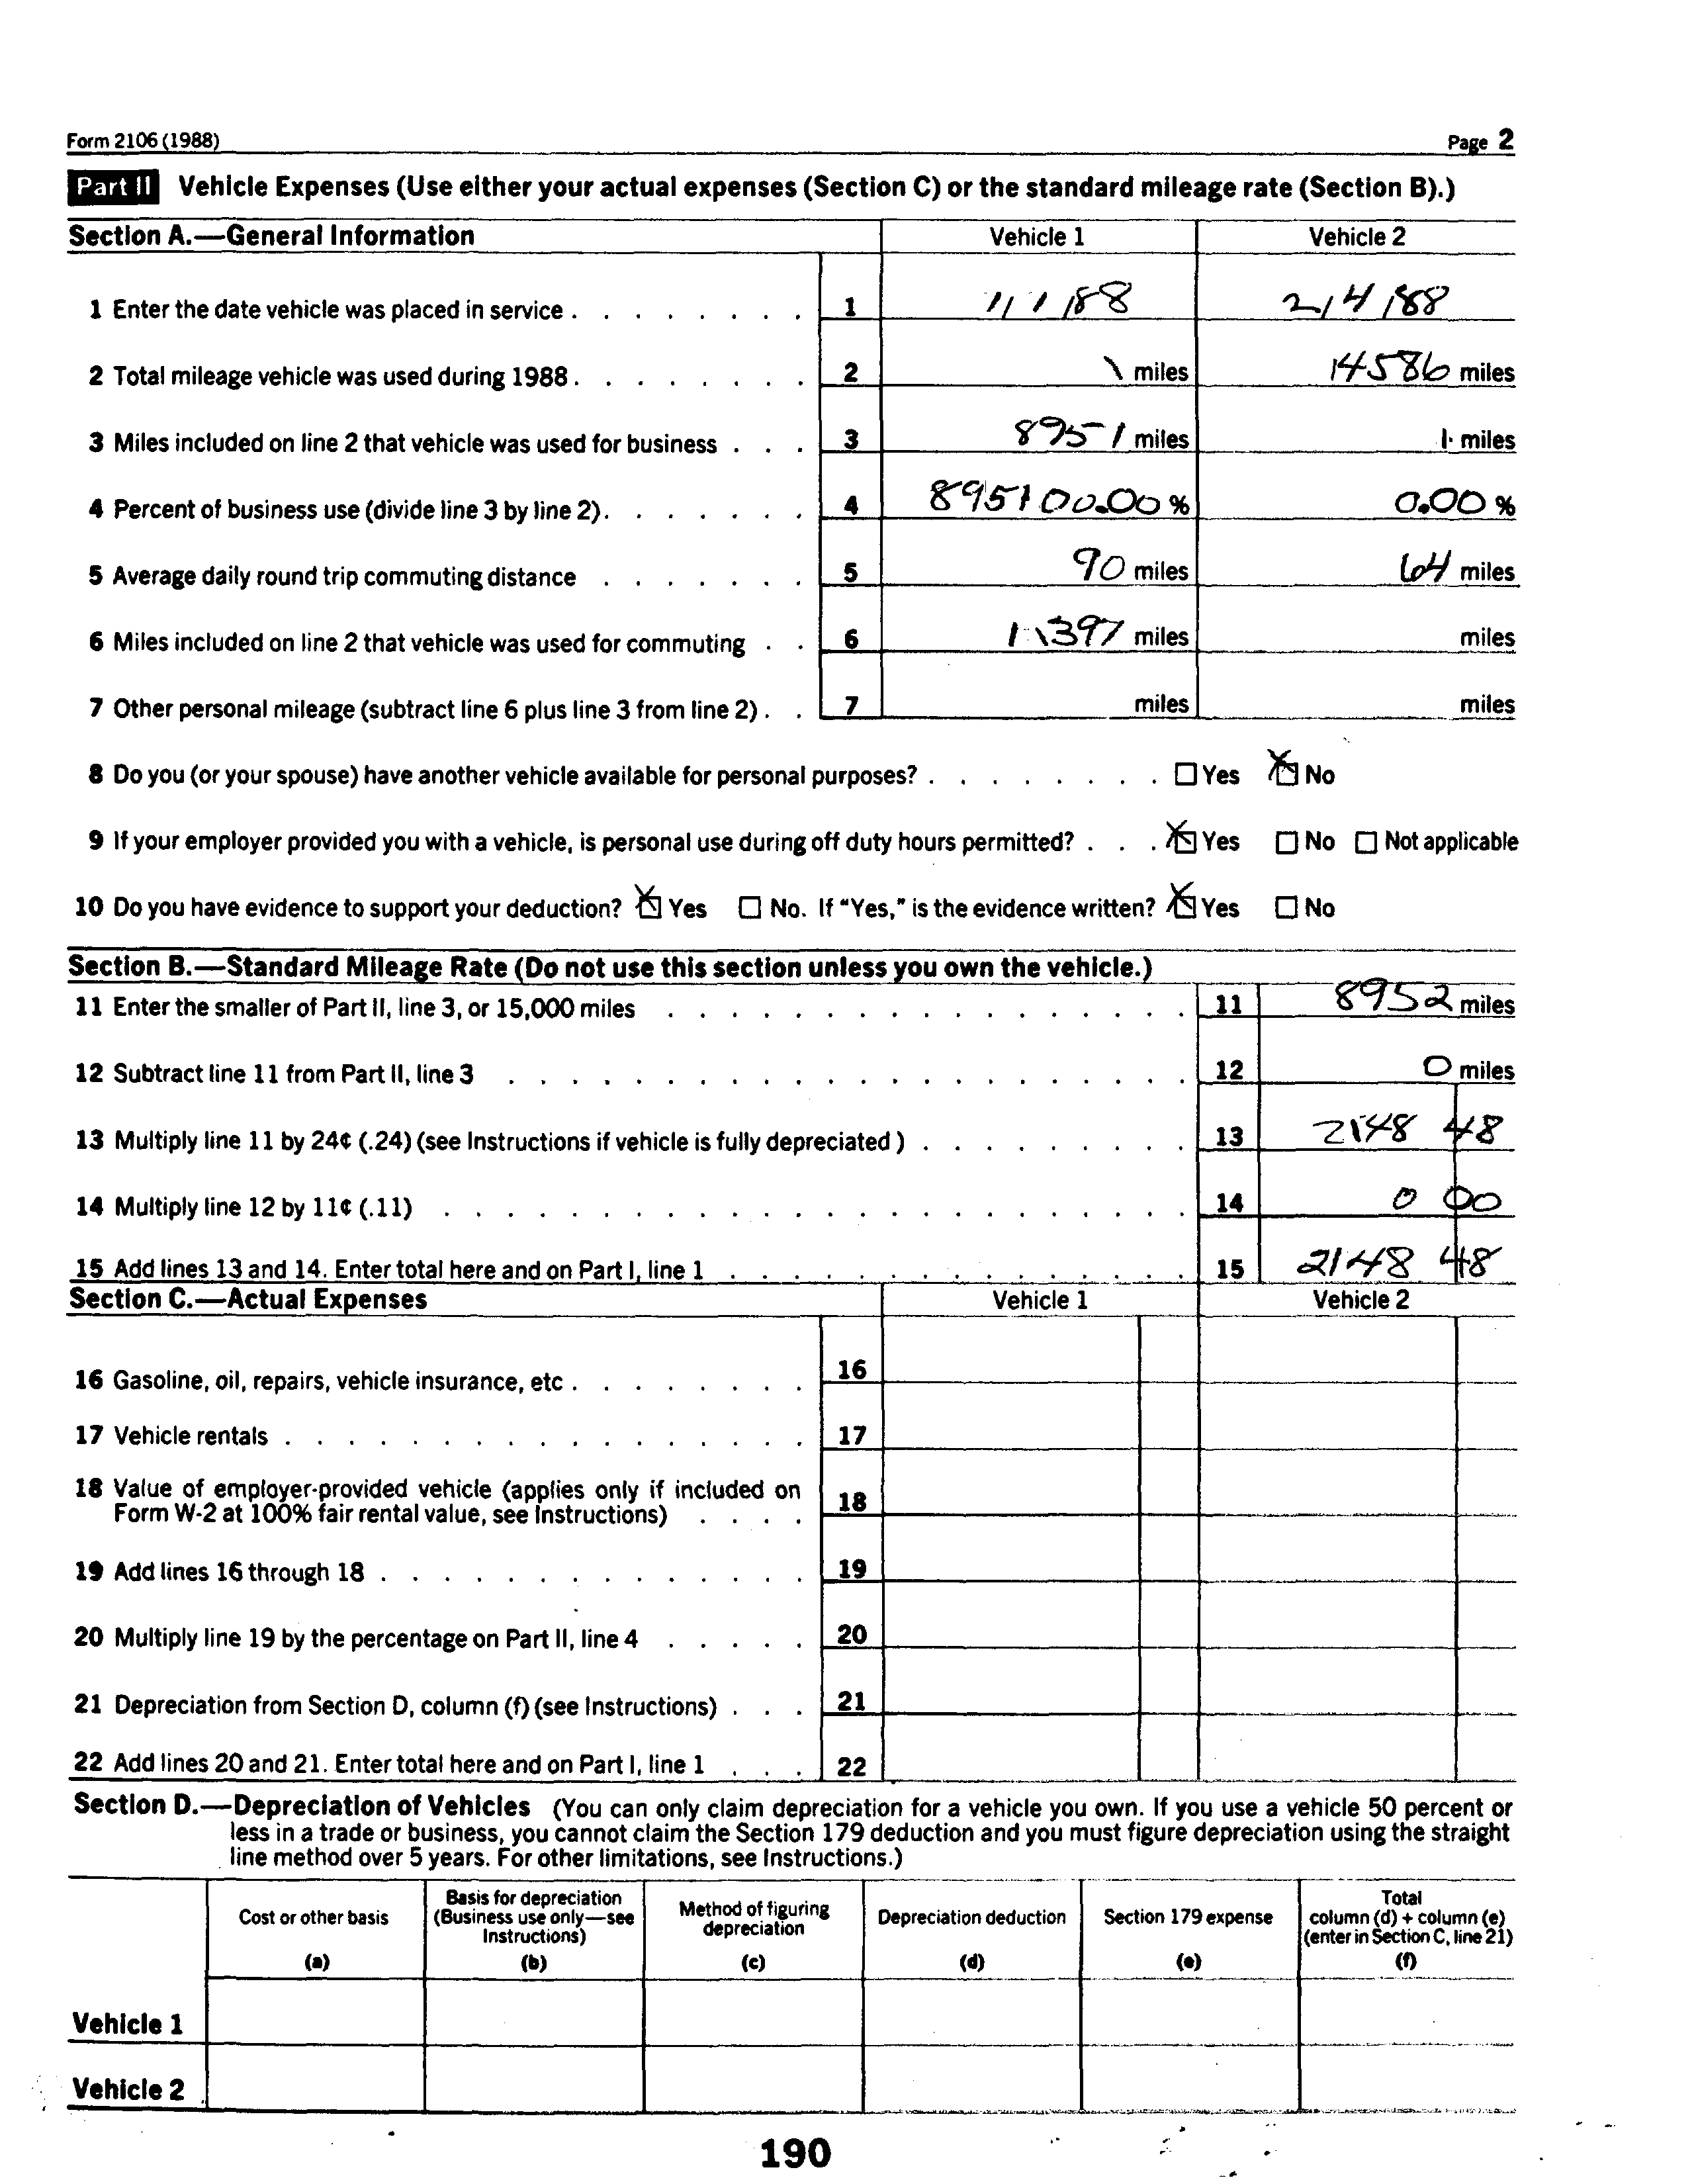 Form 2106 (1988) Page 2
Part II Vehicle Expenses (Use either your actual expenses (Section C) or the standard mileage rate (Section B).)
Section A.—General Information Vehicle 1 Vehicle 2
1 Enter the date vehicle was placed in service . . . . . . . . 1 1/1/88 2/4/88
2 Total mileage vehicle was used during 1988 . . . . . . . . 2 1 miles 14586 miles
3 Miles included on line 2 that vehicle was used for business . . . 3 8951 miles 1 miles
4 Percent of business use (divide line 3 by line 2) . . . . . . . 4 895100.00 % 0.00 %
5 Average daily round trip commuting distance . . . . . . . 5 90 miles 64 miles
6 Miles included on line 2 that vehicle was used for commuting . . 6 11397 miles miles
7 Other personal mileage (subtract line 6 plus line 3 from line 2) . . 7 miles miles
8 Do you (or your spouse) have another vehicle available for personal purposes? . . . . . . . . ☐ Yes ☒ No
9 If your employer provided you with a vehicle, is personal use during off duty hours permitted? . . . ☒ Yes ☐ No ☐ Not applicable
10 Do you have evidence to support your deduction? ☒ Yes ☐ No. If "Yes," is the evidence written? ☒ Yes ☐ No
Section B.—Standard Mileage Rate (Do not use this section unless you own the vehicle.)
11 Enter the smaller of Part II, line 3, or 15,000 miles . . . . . . . . . . . . . . . . . 11 8952 miles
12 Subtract line 11 from Part II, line 3 . . . . . . . . . . . . . . . . . . . . . . 12 0 miles
13 Multiply line 11 by 24¢ (.24) (see Instructions if vehicle is fully depreciated ) . . . . . . . . . 13 2148 48
14 Multiply line 12 by 11¢ (.11) . . . . . . . . . . . . . . . . . . . . . . . . 14 0 00
15 Add lines 13 and 14. Enter total here and on Part I, line 1 . . . . . . . . . . . . . . . 15 2148 48
Section C.—Actual Expenses Vehicle 1 Vehicle 2
16 Gasoline, oil, repairs, vehicle insurance, etc . . . . . . . . 16
17 Vehicle rentals . . . . . . . . . . . . . . . . . 17
18 Value of employer-provided vehicle (applies only if included on
Form W-2 at 100% fair rental value, see Instructions) . . . . 18
19 Add lines 16 through 18 . . . . . . . . . . . . . . 19
20 Multiply line 19 by the percentage on Part II, line 4 . . . . . 20
21 Depreciation from Section D, column (f) (see Instructions) . . . 21
22 Add lines 20 and 21. Enter total here and on Part I, line 1 . . . 22
Section D.—Depreciation of Vehicles (You can only claim depreciation for a vehicle you own. If you use a vehicle 50 percent or
less in a trade or business, you cannot claim the Section 179 deduction and you must figure depreciation using the straight
line method over 5 years. For other limitations, see Instructions.)
Cost or other basis
(a)
Basis for depreciation
(Business use only—see
Instructions)
(b)
Method of figuring
depreciation
(c)
Depreciation deduction
(d)
Section 179 expense
(e)
Total
column (d) + column (e)
(enter in Section C, line 21)
(f)
Vehicle 1
Vehicle 2
190